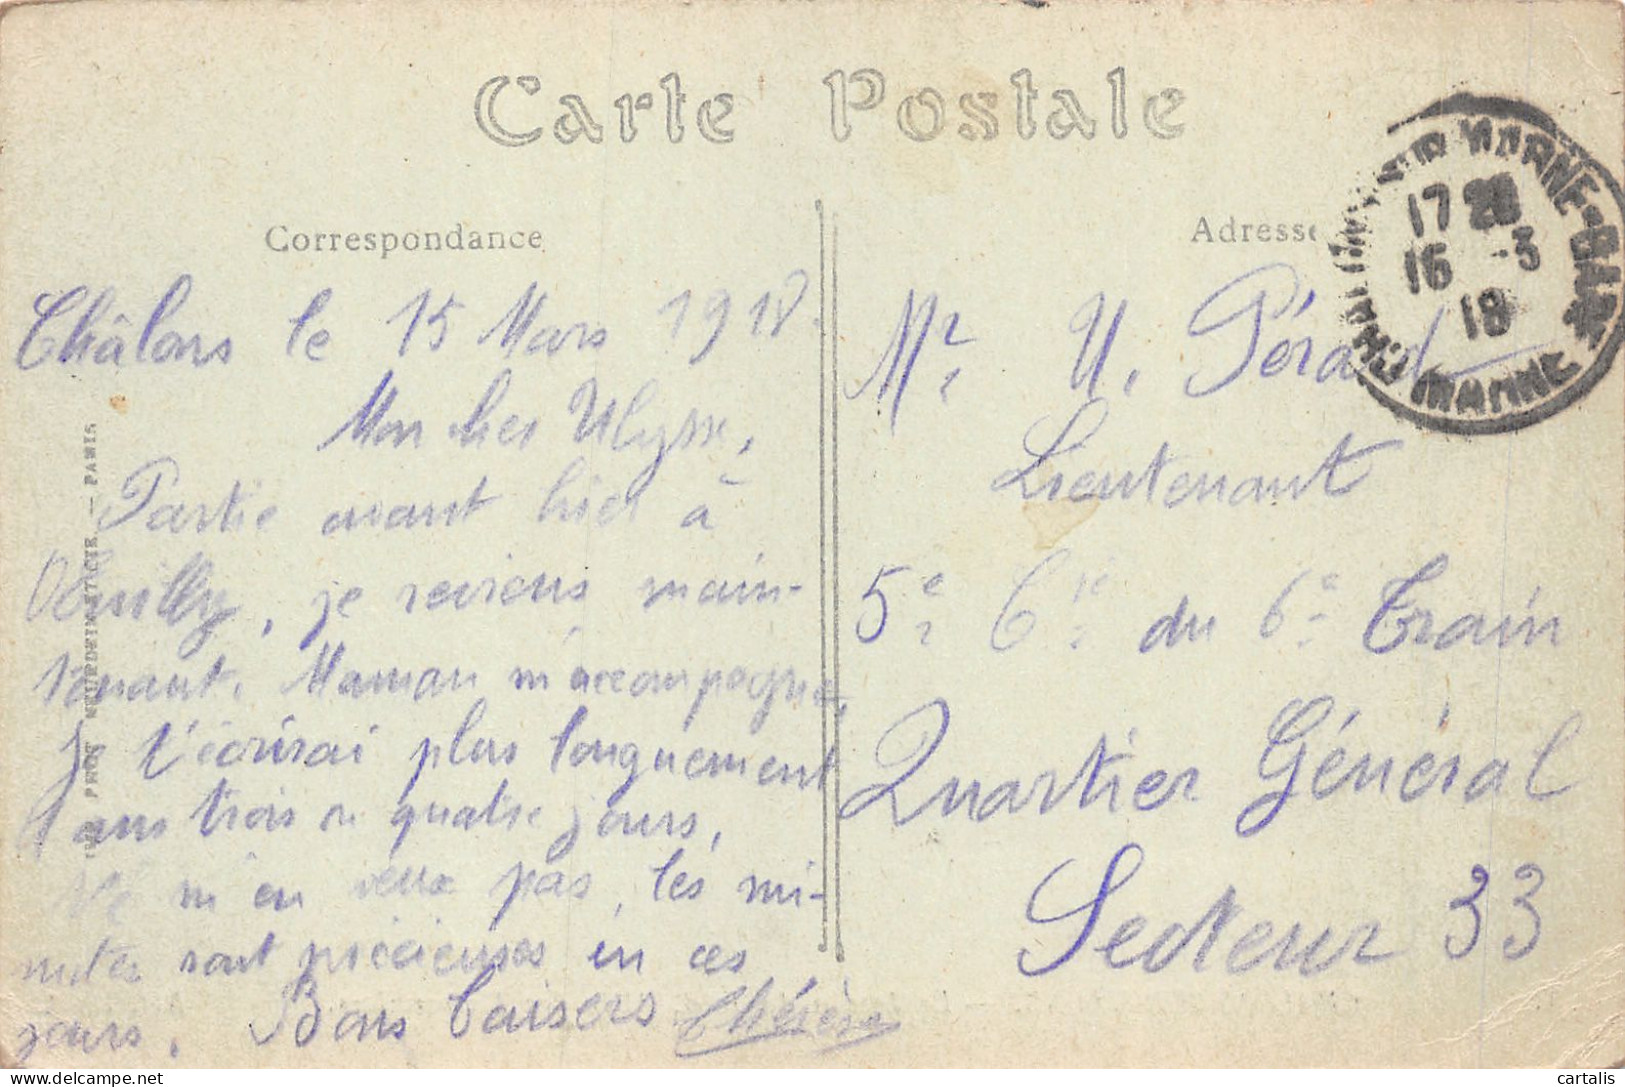 Carte Postale
Correspondance
Châlons le 15 Mars 1918.
Mon cher Ulysse,
Partie avant hier à
je reviens main-
tenant. Maman m'accompagne.
Je t'écrirai plus longuement
dans trois ou quatre jours,
Ne m'en veux pas, les mi-
nutes sont précieuses en ces
jours. Bons baisers Thérèse
PHOT. NEURDEIN ET CIE. — PARIS
Adresse
CHALONS SUR MARNE-GARE
17
16 -3
18
MARNE
Mr. U. Pérard
Lieutenant
5e Cie du 6e Train
Quartier Général
Secteur 33
cartalis